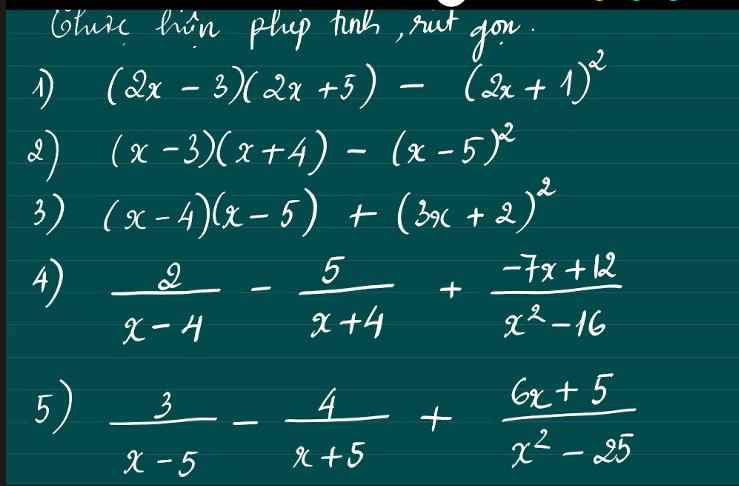 Thực hiện phép tính, rút gọn.
1) (2x - 3)(2x + 5) - (2x + 1)²
2) (x - 3)(x + 4) - (x - 5)²
3) (x - 4)(x - 5) + (3x + 2)²
4) 2/(x - 4) - 5/(x + 4) + (-7x + 12)/(x² - 16)
5) 3/(x - 5) - 4/(x + 5) + (6x + 5)/(x² - 25)